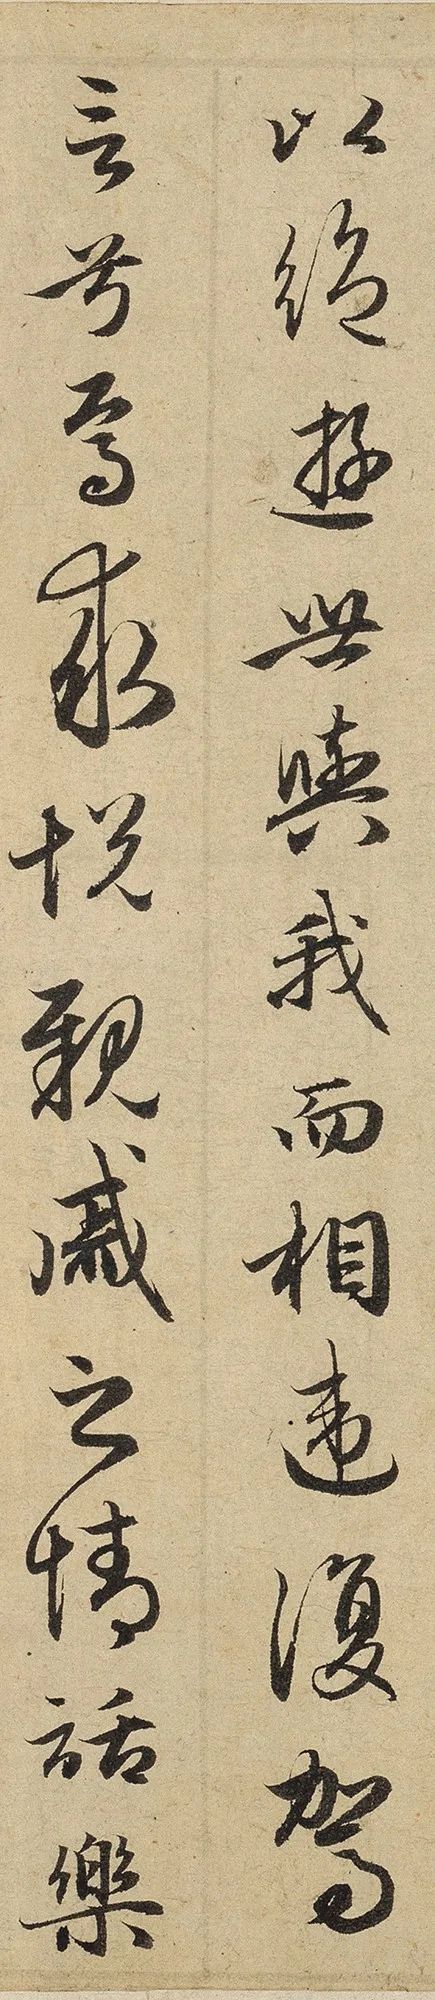 以絶遊世與我而相違復駕
言兮焉求悅親戚之情話樂